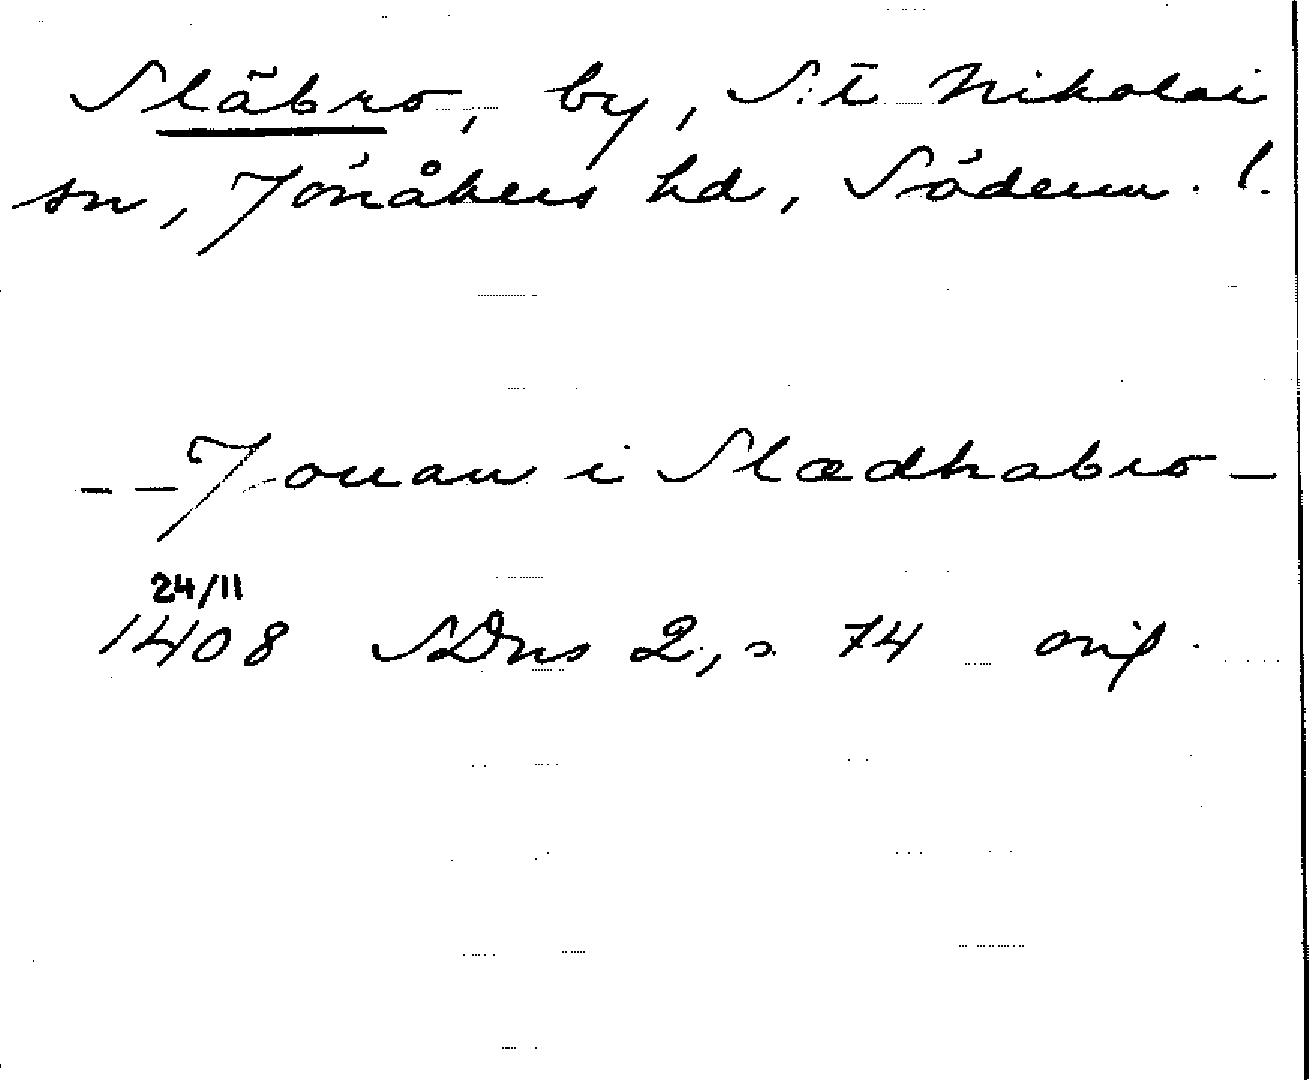 Släbro, by, S:t Nikolai
sn, Jönåkers hd, Söderm. l.
- - Jonan i Slædhabro -
24/11
1408 SDns 2, s. 74 orig.